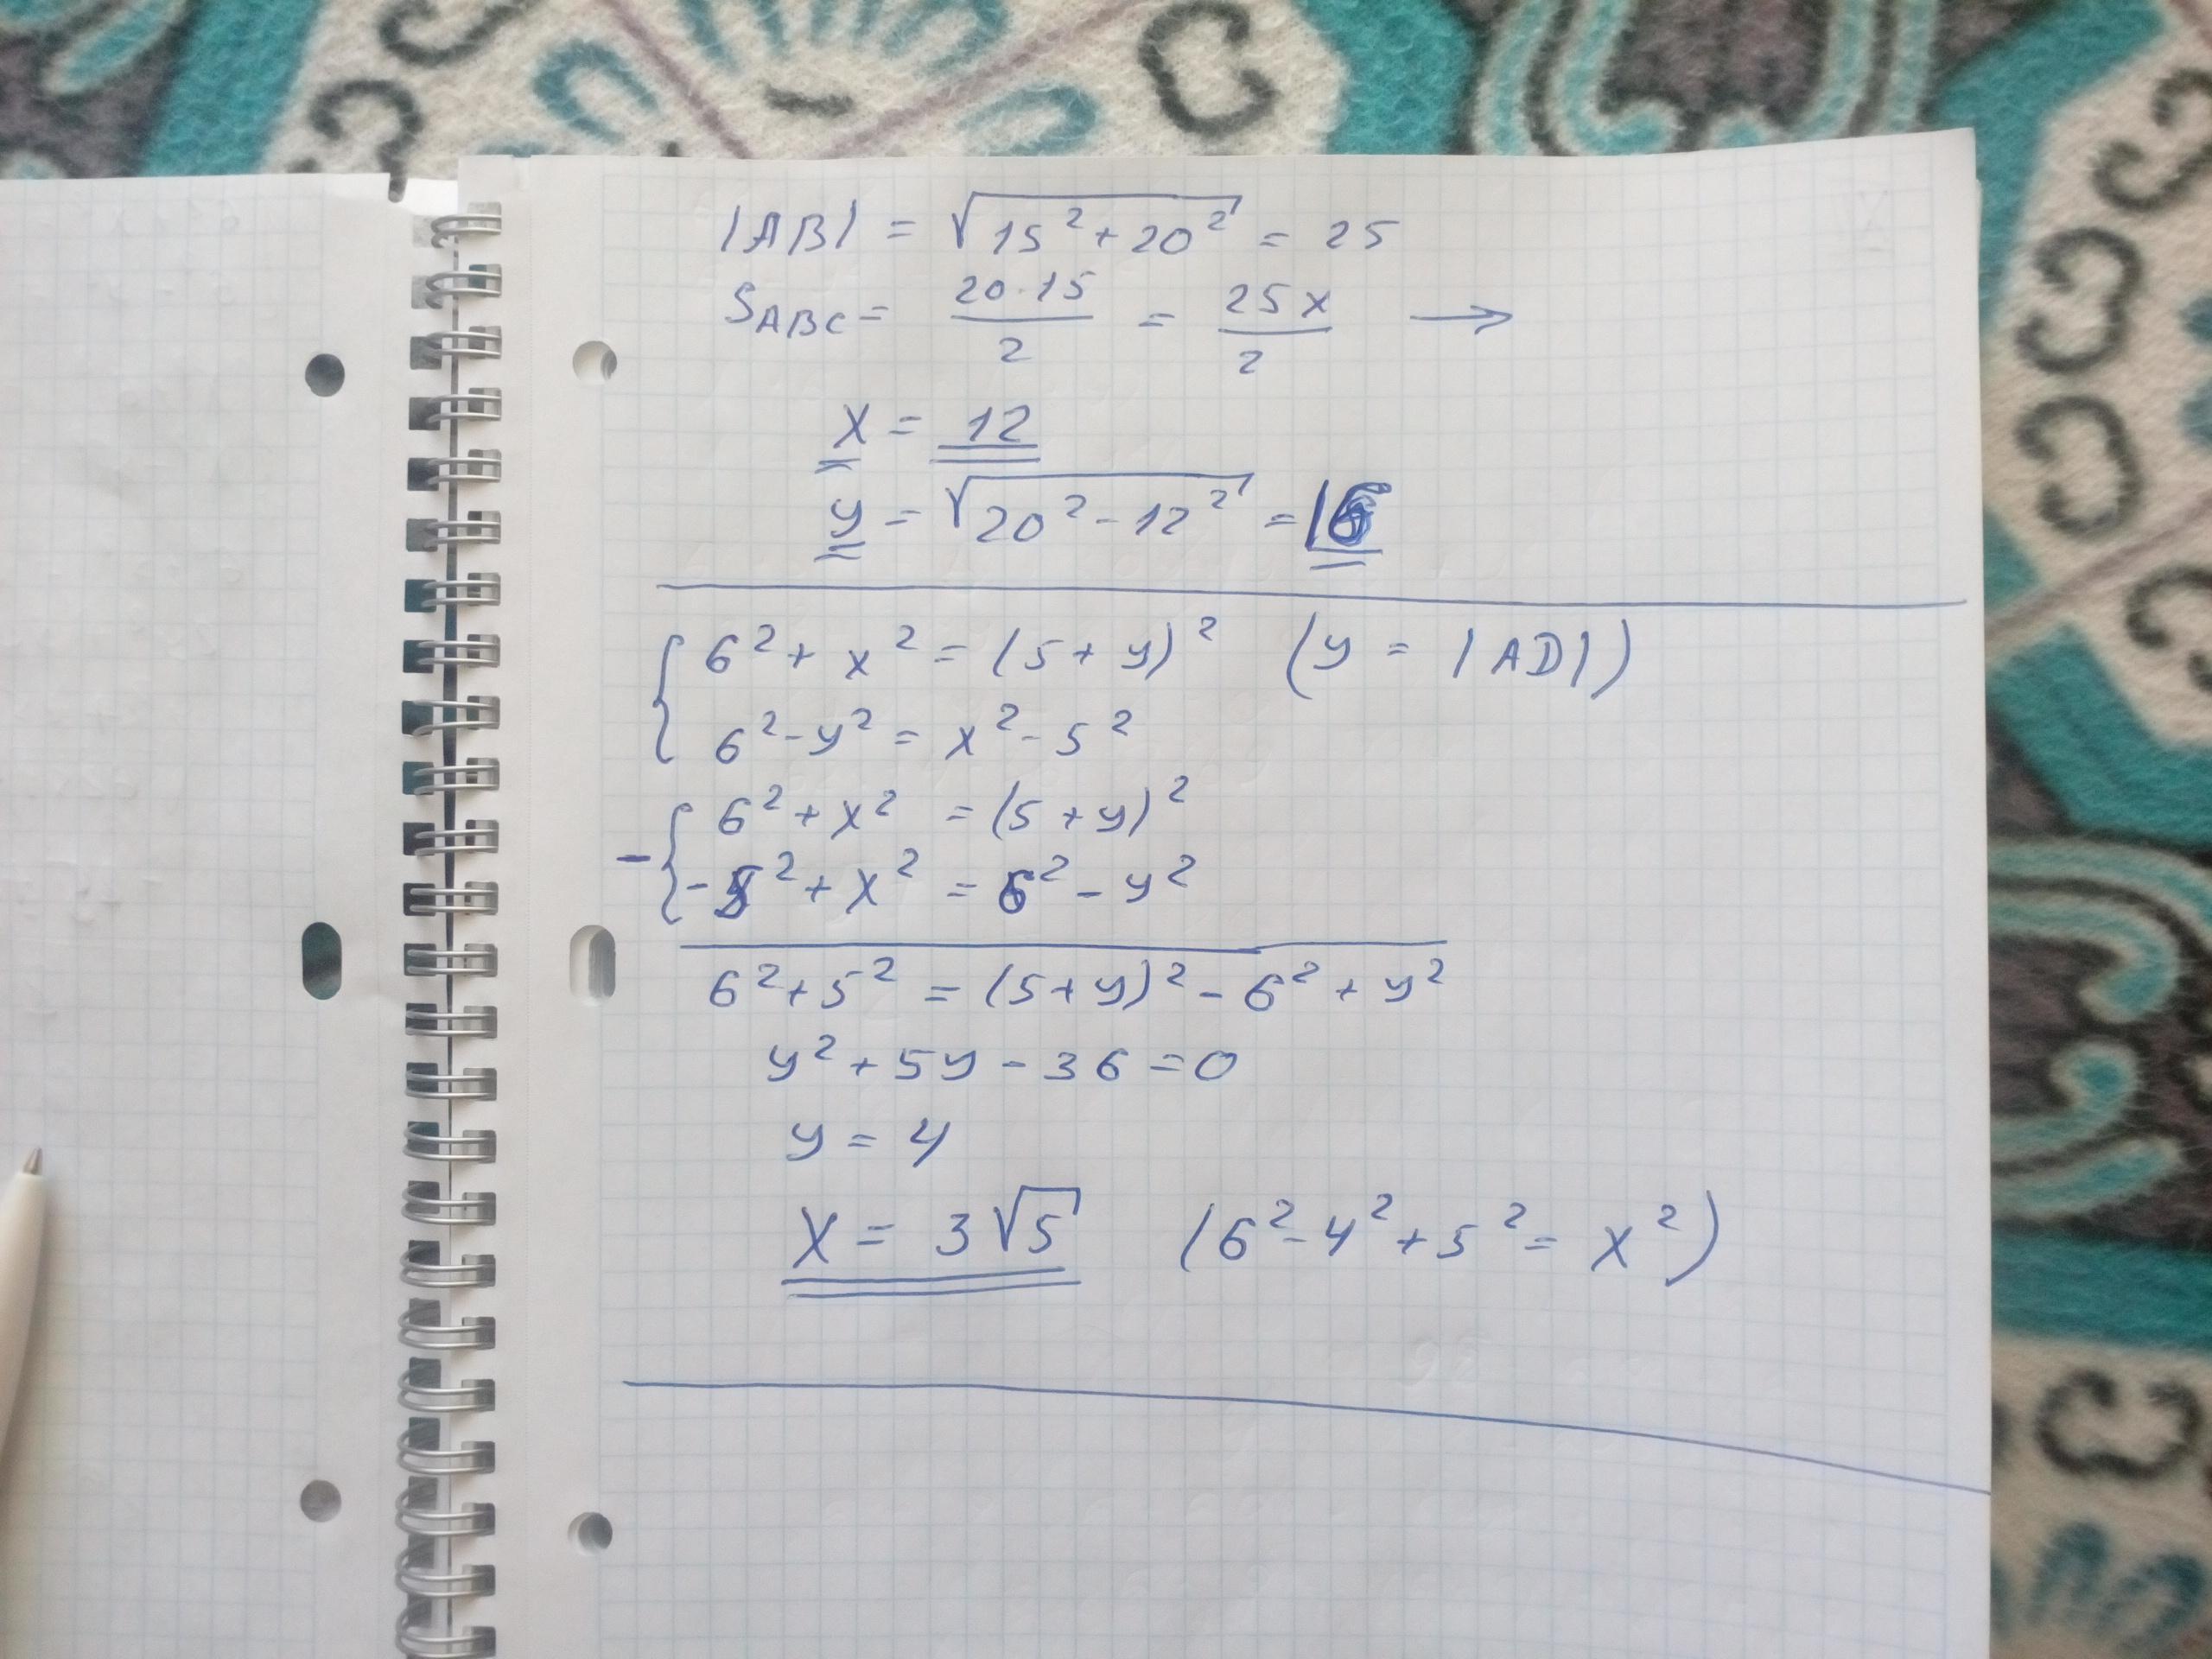 |AB| = √(15² + 20²) = 25
S_ABC = (20·15)/2 = 25x/2 →
x = 12
y = √(20² - 12²) = 16
{ 6² + x² = (5 + y)² (y = |AD|)
6² - y² = x² - 5²
- { 6² + x² = (5 + y)²
-5² + x² = 6² - y²
6² + 5² = (5 + y)² - 6² + y²
y² + 5y - 36 = 0
y = 4
x = 3√5 (6² - 4² + 5² = x²)